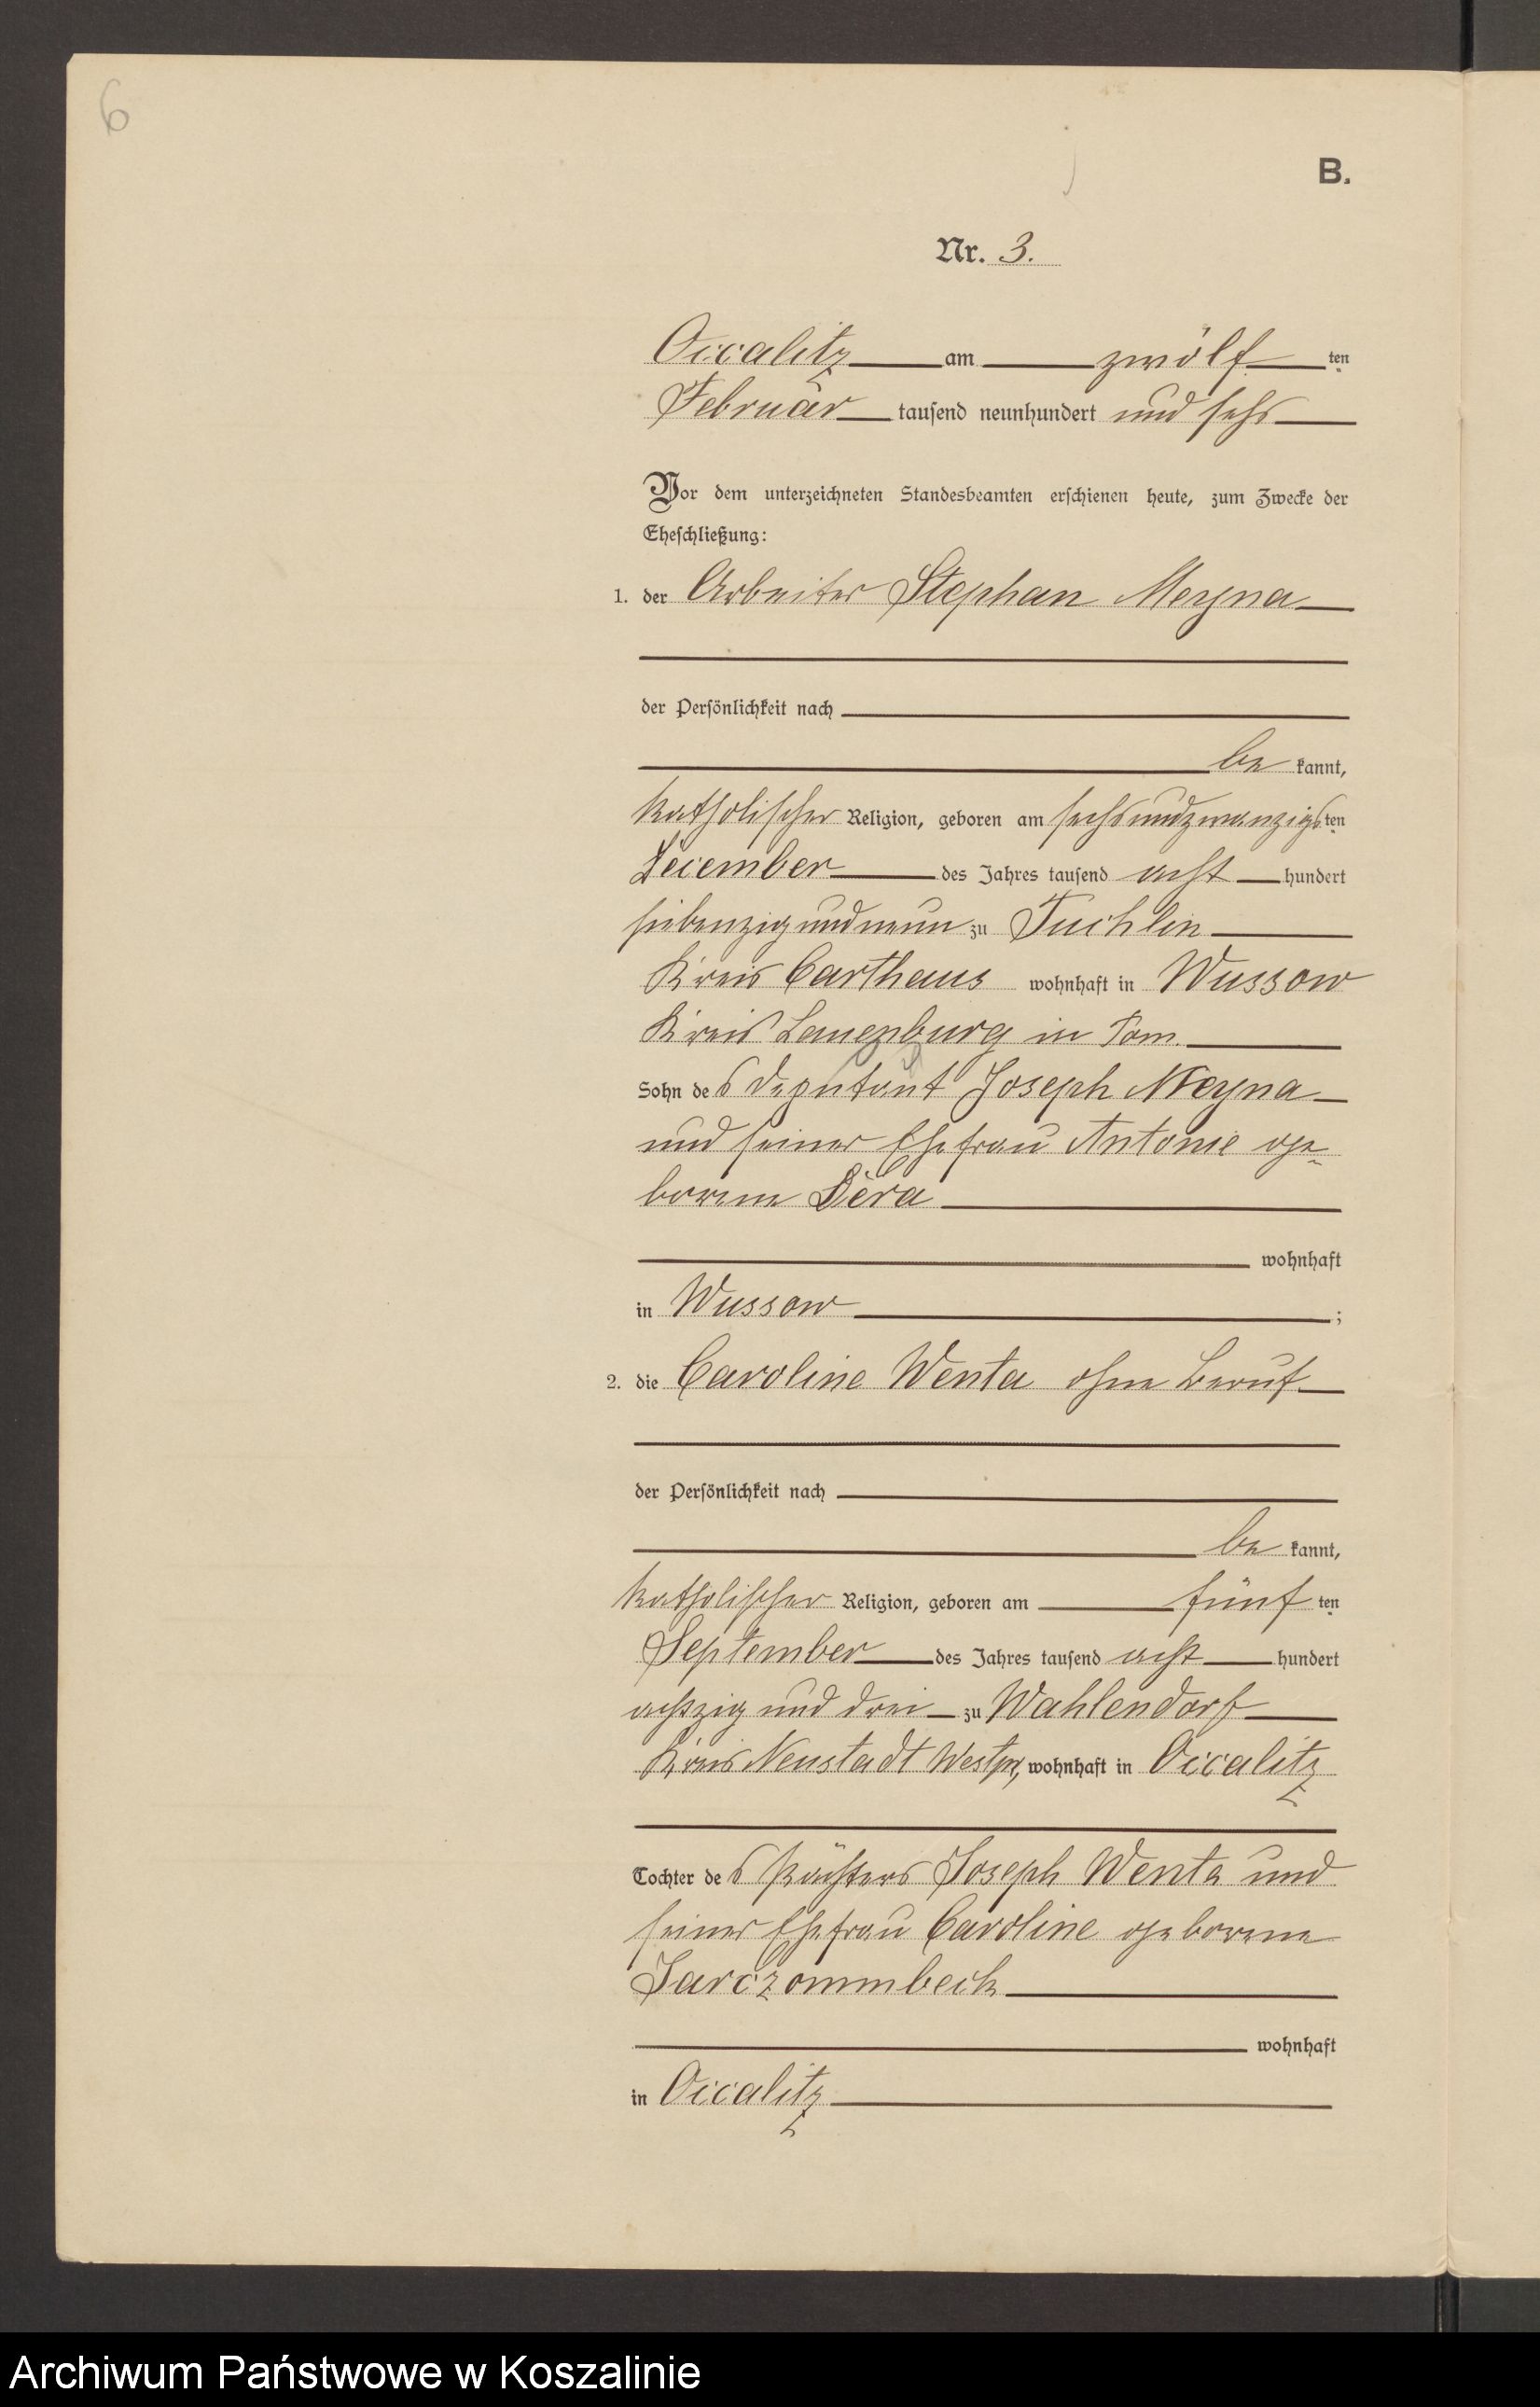 6
B.
Nr. 3.
Occalitz am zwölf ten
Februar tausend neunhundert und sechs
Vor dem unterzeichneten Standesbeamten erschienen heute, zum Zwecke der
Eheschließung:
1. der Arbeiter Stephan Meyna
der Persönlichkeit nach
be kannt,
katholischer Religion, geboren am sechsundzwanzigsten
December des Jahres tausend acht hundert
siebenzig und neun zu Tuchlin
Kreis Carthaus wohnhaft in Wussow
Kreis Lauenburg in Pom.
Sohn des Deputant Joseph Meyna
und seiner Ehefrau Antonie ge-
borene
wohnhaft
in Wussow ;
2. die Caroline Wenta ohne Beruf
der Persönlichkeit nach
be kannt,
katholischer Religion, geboren am fünf ten
September des Jahres tausend acht hundert
achtzig und drei zu Wahlendorf
Kreis Neustadt Westpr, wohnhaft in Occalitz
Tochter des Pächters Joseph Wenta und
seiner Ehefrau Caroline geborene
Jarczommbeck
wohnhaft
in Occalitz
Archiwum Państwowe w Koszalinie